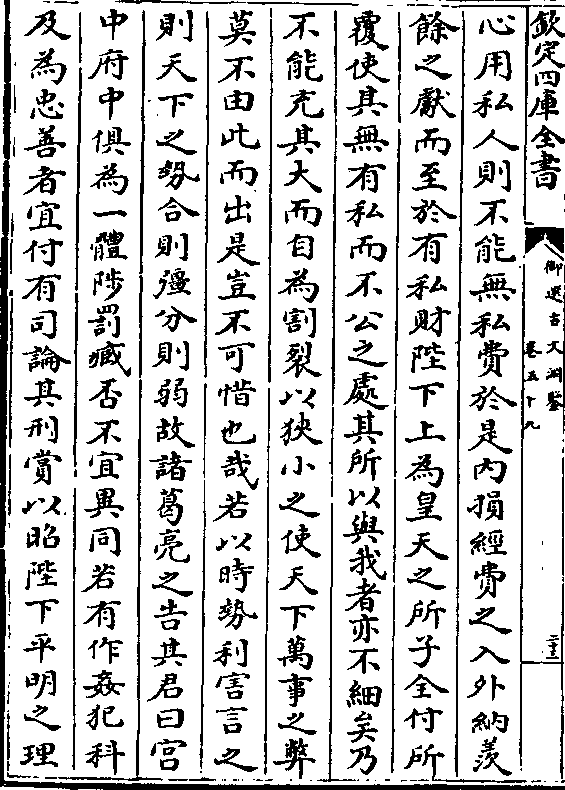 欽定四庫全書
御選古文淵鑒
卷五十九
二十三
心用私人則不能無私費於是內損經費之入外納羡
餘之獻而至於有私財陛下上為皇天之所子全付所
覆使其無有私而不公之處其所以與我者亦不細矣乃
不能充其大而自為割裂以狹小之使天下萬事之弊
莫不由此而出是豈不可惜也哉若以時勢利害言之
則天下之勢合則彊分則弱故諸葛亮之告其君曰宫
中府中俱為一體陟罰臧否不宜異同若有作姦犯科
及為忠善者宜付有司論其刑賞以昭陛下平明之理